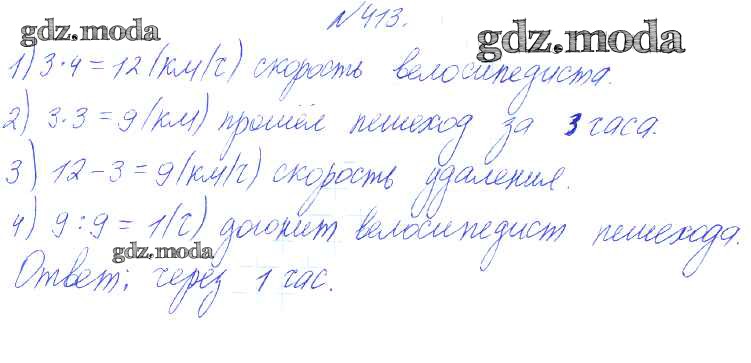 №413.
gdz.moda
gdz.moda
1) 3·4 = 12 (км/ч) скорость велосипедиста.
2) 3·3 = 9 (км) прошёл пешеход за 3 часа.
3) 12 - 3 = 9 (км/ч) скорость удаления.
4) 9 : 9 = 1 (ч) догонит велосипедист пешехода.
gdz.moda
Ответ: через 1 час.